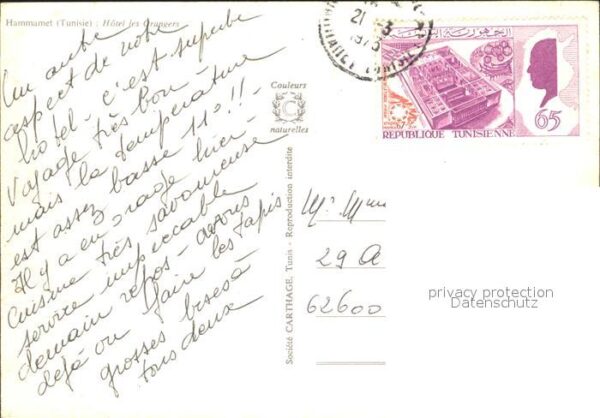 Hammamet (Tunisie) : Hôtel les Orangers
Un autre
aspect de notre
hôtel - c'est superbe
Voyage très bon -
mais la température
est assez basse 11° !! -
Il y a eu orage hier -
cuisine très savoureuse
service impeccable
demain repos - avons
déjà vu faire les tapis
grosses bises à
tous deux
Couleurs
C
naturelles
Société CARTHAGE, Tunis - Reproduction interdite
21 - 3
1975
الجمهورية التونسية
REPUBLIQUE TUNISIENNE
65
Mr Mme
29 A
62600
privacy protection
Datenschutz